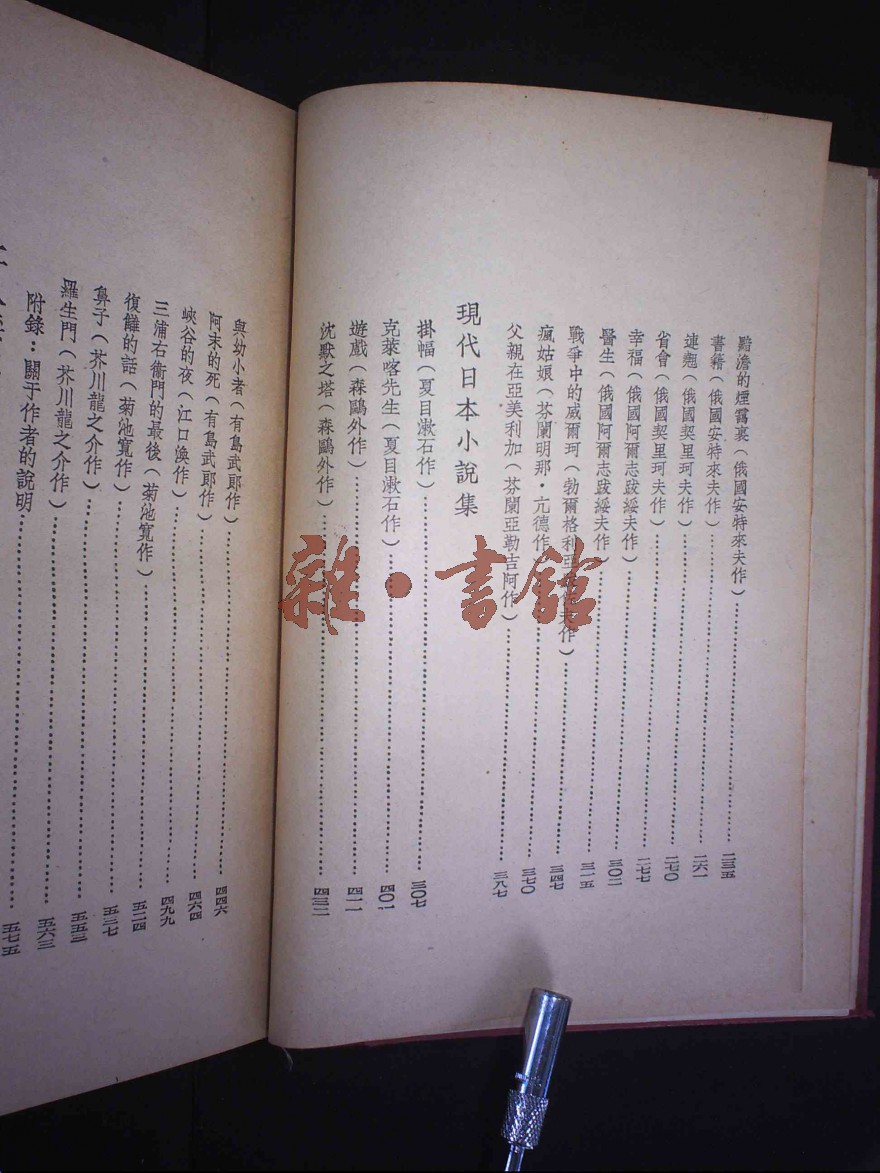 黯澹的煙靄裏（俄國安特來夫作）……二三五
書籍（俄國安特來夫作）……二六一
連翹（俄國契里珂夫作）……二七〇
省會（俄國契里珂夫作）……二七七
幸福（俄國阿爾志跋綏夫作）……三〇二
醫生（俄國阿爾志跋綏夫作）……三一五
戰爭中的威爾珂（勃爾格利亞夫作）……三四七
瘋姑娘（芬蘭明那・亢德作）……三七〇
父親在亞美利加（芬蘭亞勒吉阿作）……三八七
現代日本小說集
掛幅（夏目漱石作）……三〇七
克萊喀先生（夏目漱石作）……四〇一
遊戲（森鷗外作）……四一一
沈默之塔（森鷗外作）……四三二
與幼小者（有島武郎作）……四四六
阿末的死（有島武郎作）……四六四
峽谷的夜（江口渙作）……四九九
三浦右衞門的最後（菊池寬作）……五二四
復讎的話（菊池寬作）……五三七
鼻子（芥川龍之介作）……五五三
羅生門（芥川龍之介作）……五六三
附錄：關于作者的說明……五七五
雜・書館